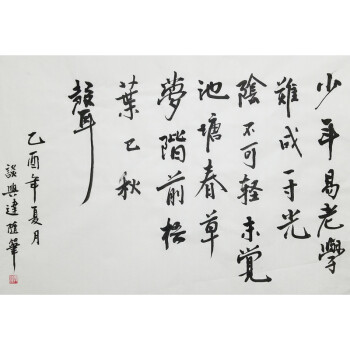 少年易老學
難成一寸光
陰不可轻未覺
池塘春草
夢階前梧
葉已秋
聲
乙酉年夏月
興 筆